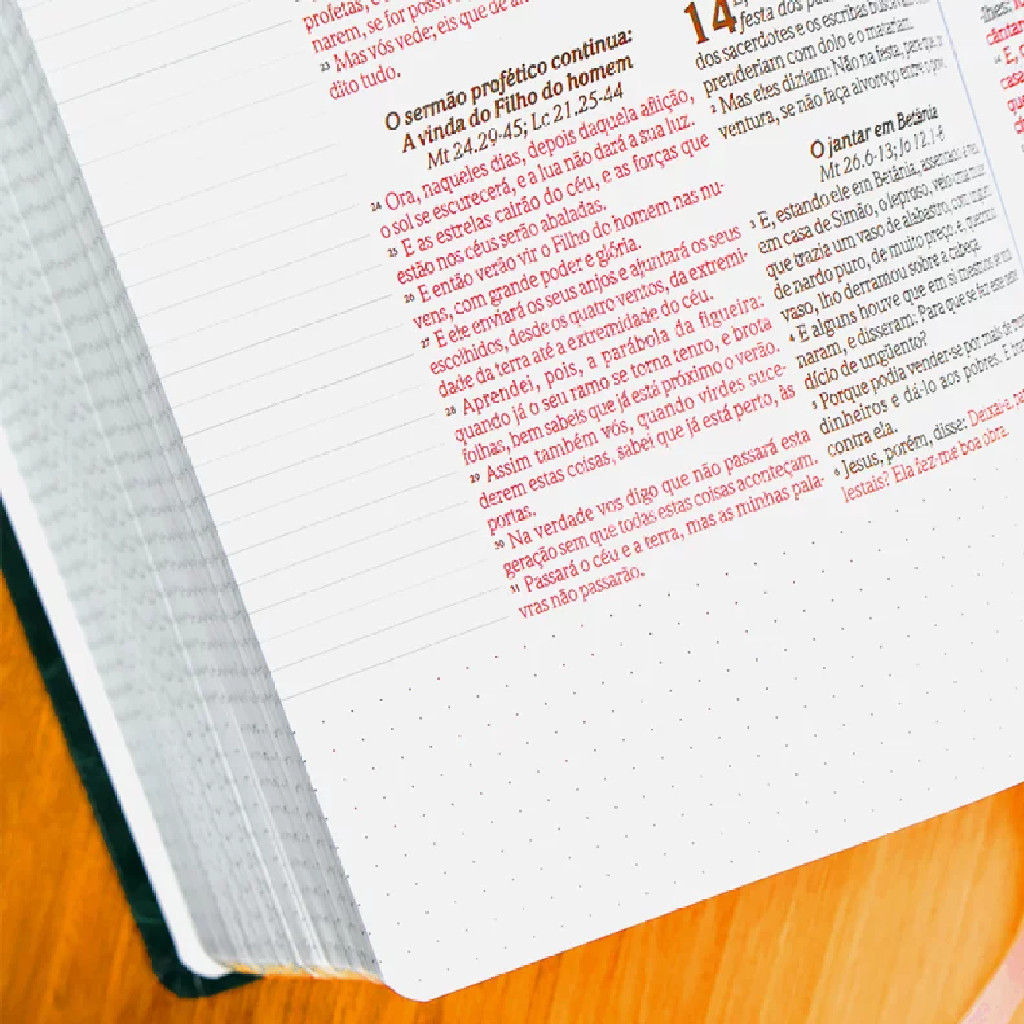 profetas, e
narem, se for possív
23 Mas vós vede; eis que de an
dito tudo.
O sermão profético continua:
A vinda do Filho do homem
Mt 24.29-45; Lc 21.25-44
24 Ora, naqueles dias, depois daquela aflição,
o sol se escurecerá, e a lua não dará a sua luz.
25 E as estrelas cairão do céu, e as forças que
estão nos céus serão abaladas.
26 E então verão vir o Filho do homem nas nu-
vens, com grande poder e glória.
27 E ele enviará os seus anjos e ajuntará os seus
escolhidos, desde os quatro ventos, da extremi-
dade da terra até a extremidade do céu.
28 Aprendei, pois, a parábola da figueira:
quando já o seu ramo se torna tenro, e brota
folhas, bem sabeis que já está próximo o verão.
29 Assim também vós, quando virdes suce-
derem estas coisas, sabei que já está perto, às
portas.
30 Na verdade vos digo que não passará esta
geração sem que todas estas coisas aconteçam.
31 Passará o céu e a terra, mas as minhas pala-
vras não passarão.
14
festa dos
dos sacerdotes e os escribas buscavam
prenderiam com dolo e o matariam.
2 Mas eles diziam: Não na festa, para que
ventura, se não faça alvoroço entre o povo.
O jantar em Betânia
Mt 26.6-13; Jo 12.1-8
3 E, estando ele em Betânia, assentado à
em casa de Simão, o leproso, veio uma
que trazia um vaso de alabastro, com
de nardo puro, de muito preço; e, quebrando
vaso, lho derramou sobre a cabeça.
4 E alguns houve que em si mesmos se
naram, e disseram: Para que se fez este
dício de ungüento?
5 Porque podia vender-se por mais de
dinheiros e dá-lo aos pobres. E
contra ela.
6 Jesus, porém, disse: Deixai-a,
lestais? Ela fez-me boa obra.
cantar
E,
casa
que